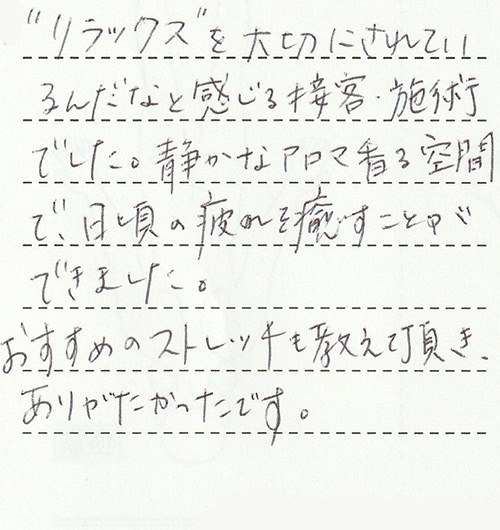 "リラックス"を大切にされてい
るんだなと感じる接客・施術
でした。静かなアロマ香る空間
で、日頃の疲れを癒すことが
できました。
おすすめのストレッチも教えて頂き、
ありがたかったです。